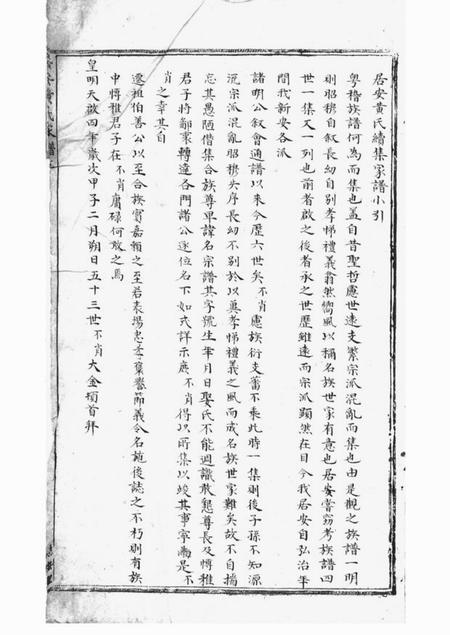 居安黃氏續集家譜小引
粵稽族譜何為而集也盖自昔聖哲慮世遠支繁宗派混亂而集也由是觀之族譜一明
則昭穆自叙長幼自別孝悌禮義翕然嚮風以稱名族世家有意也居安嘗竊考族譜四
世一集又一列也前者啟之後者承之世歷雖遠而宗派顯然在目今我居安自弘治年
間我新安各派
諸明公叙會通譜以来今歷六世矣不肖慮族衍支蕃不乘此時一集則後子孫不知源
流宗派混亂昭穆失序長幼不別於以奠孝悌禮義之風而成名族世家難矣故不自揣
忘其愚陋偕集合族尊卑諱名宗譜其字號生華月日娶氏不能週識敢懇尊長及博雅
君子將鄙稟轉達各門諸公逐位名下如式詳示庶不肖得以所集以竣其事寧為是不
肖之幸其自
遷祖伯善公以至合族實嘉賴之至若表揚忠孝棄譽節義令名施後誌之不朽則有族
中博雅君子在不肖庸碌何放之焉
皇明天啟四年歲次甲子二月朔日五十三世不肖大金頓首拜